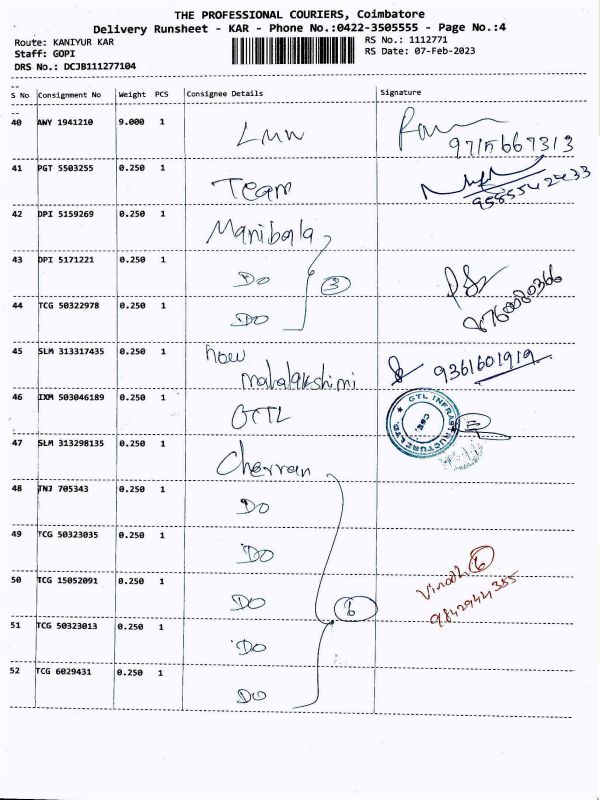 THE PROFESSIONAL COURIERS, Coimbatore
Delivery Runsheet - KAR - Phone No.:0422-3505555 - Page No.:4
Route: KANIYUR KAR
RS No.: 1112771
Staff: GOPI
RS Date: 07-Feb-2023
DRS No.: DCJB111277104
S No Consignment No Weight PCS Consignee Details Signature
40 AWY 1941210 9.000 1 LMW
9715667313
41 PGT 5503255 0.250 1 Team
9585542433
42 DPI 5159269 0.250 1 Manibala
43 DPI 5171221 0.250 1 DO 3
44 TCG 50322978 0.250 1 DO
8760080366
45 SLM 313317435 0.250 1 new
mahalakshimi 9361601919
46 IXM 503046189 0.250 1 GTL GTL INFRASTRUCTURE LTD. CBE.
47 SLM 313298135 0.250 1 Cherran
48 TNJ 705343 0.250 1 DO
49 TCG 50323035 0.250 1 DO
Vinoth 6
50 TCG 15052091 0.250 1 DO 6
9842944355
51 TCG 50323013 0.250 1 DO
52 TCG 6029431 0.250 1 DO